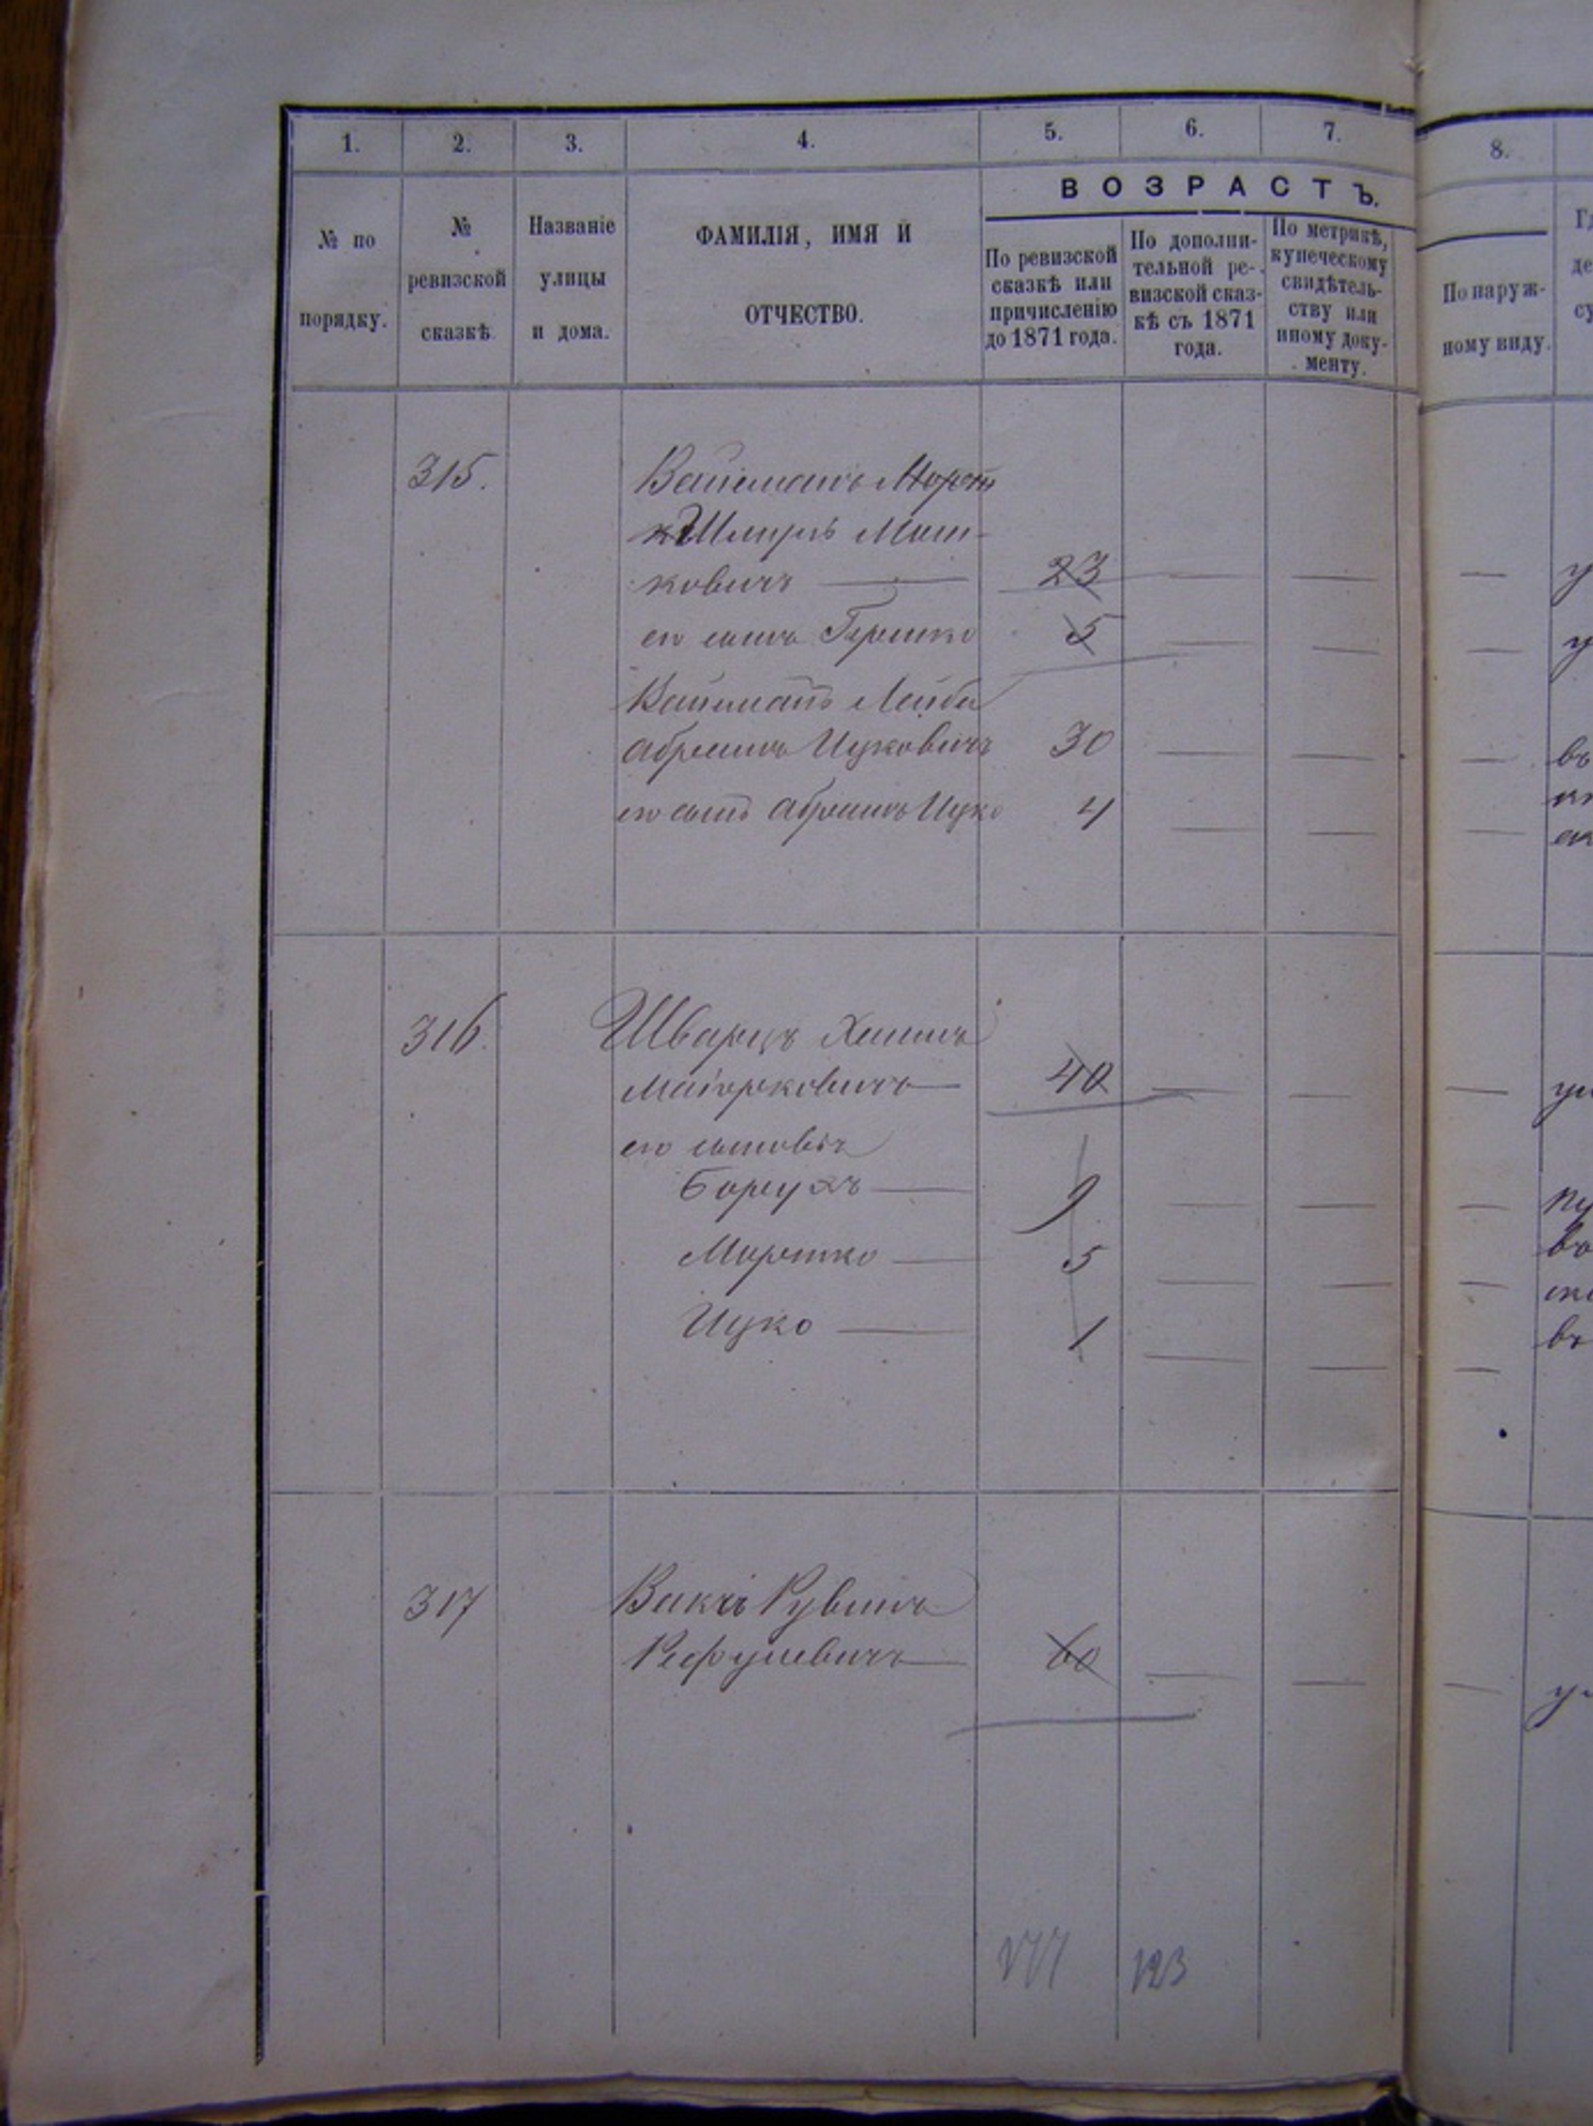 1. 2. 3. 4. 5. 6. 7. 8.
ВОЗРАСТЪ.
№ по
порядку.
№
ревизской
сказкѣ.
Названіе
улицы
и дома.
ФАМИЛІЯ, ИМЯ И
ОТЧЕСТВО.
По ревизской
сказкѣ или
причисленію
до 1871 года.
По дополни-
тельной ре-
визской сказ-
кѣ съ 1871
года.
По метрикѣ,
купеческому
свидѣтель-
ству или
иному доку-
менту.
По наруж-
ному виду.
315.
Шмуль Мош-
ковичъ — 23 — — —
его сынъ Гершко 5 — — —
Вайсманъ Лейба
Абрамъ Ицковичъ 30 — — —
его сынъ Абрамъ Ицко 4 — — —
316. Шварцъ Хаимъ
Маіорковичъ — 40 — — —
его сыновья
Борухъ — 9 — — —
Мошко — 5 — — —
Ицко — 1 — — —
317 Рувинъ
60 — — —
177 123